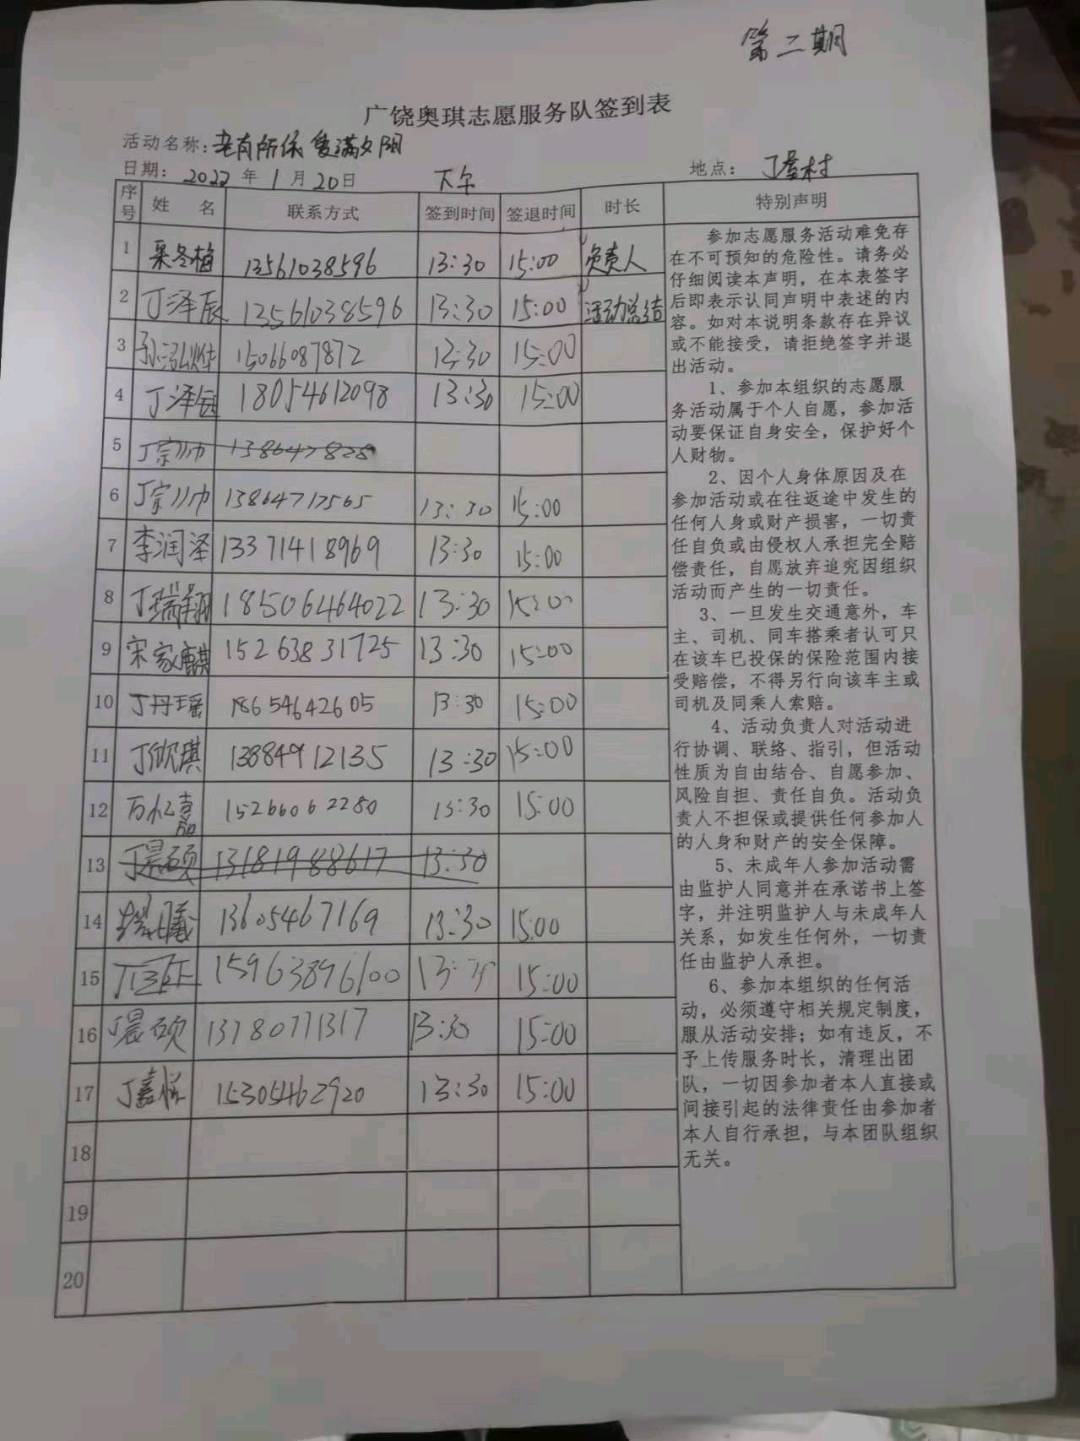 第二期
广饶奥琪志愿服务队签到表
活动名称：老有所依 爱满夕阳
日期：2022年1月20日 下午 地点：丁屋村
序号 姓名 联系方式 签到时间 签退时间 时长 特别声明
1 冬梅 13561038596 13:30 15:00 负责人
2 丁泽辰 13561038596 13:30 15:00 活动总结
3 孙泓烨 15066087872 13:30 15:00
4 丁泽钰 18054612098 13:30 15:00
5 丁宗川巾 1386647828
6 丁宗川巾 13864717565 13:30 15:00
7 李润泽 13371418969 13:30 15:00
8 丁瑞翔 18506464022 13:30 15:00
9 宋家麒 15263831725 13:30 15:00
10 丁丹瑶 18654642605 13:30 15:00
11 丁欣琪 13884912135 13:30 15:00
12 15266062280 13:30 15:00
13 丁晨硕 13181988617 13:30
14 13605467169 13:30 15:00
15 15963896100 13:30 15:00
16 丁晨硕 13780771317 13:30 15:00
17 丁嘉怡 15305462920 13:30 15:00
18
19
20
参加志愿服务活动难免存
在不可预知的危险性。请务必
仔细阅读本声明，在本表签字
后即表示认同声明中表述的内
容。如对本说明条款存在异议
或不能接受，请拒绝签字并退
出活动。
1、参加本组织的志愿服
务活动属于个人自愿，参加活
动要保证自身安全，保护好个
人财物。
2、因个人身体原因及在
参加活动或在往返途中发生的
任何人身或财产损害，一切责
任自负或由侵权人承担完全赔
偿责任，自愿放弃追究因组织
活动而产生的一切责任。
3、一旦发生交通意外，车
主、司机、同车搭乘者认可只
在该车已投保的保险范围内接
受赔偿，不得另行向该车主或
司机及同乘人索赔。
4、活动负责人对活动进
行协调、联络、指引，但活动
性质为自由结合、自愿参加、
风险自担、责任自负。活动负
责人不担保或提供任何参加人
的人身和财产的安全保障。
5、未成年人参加活动需
由监护人同意并在承诺书上签
字，并注明监护人与未成年人
关系，如发生任何外，一切责
任由监护人承担。
6、参加本组织的任何活
动，必须遵守相关规定制度，
服从活动安排；如有违反，不
予上传服务时长，清理出团
队，一切因参加者本人直接或
间接引起的法律责任由参加者
本人自行承担，与本团队组织
无关。